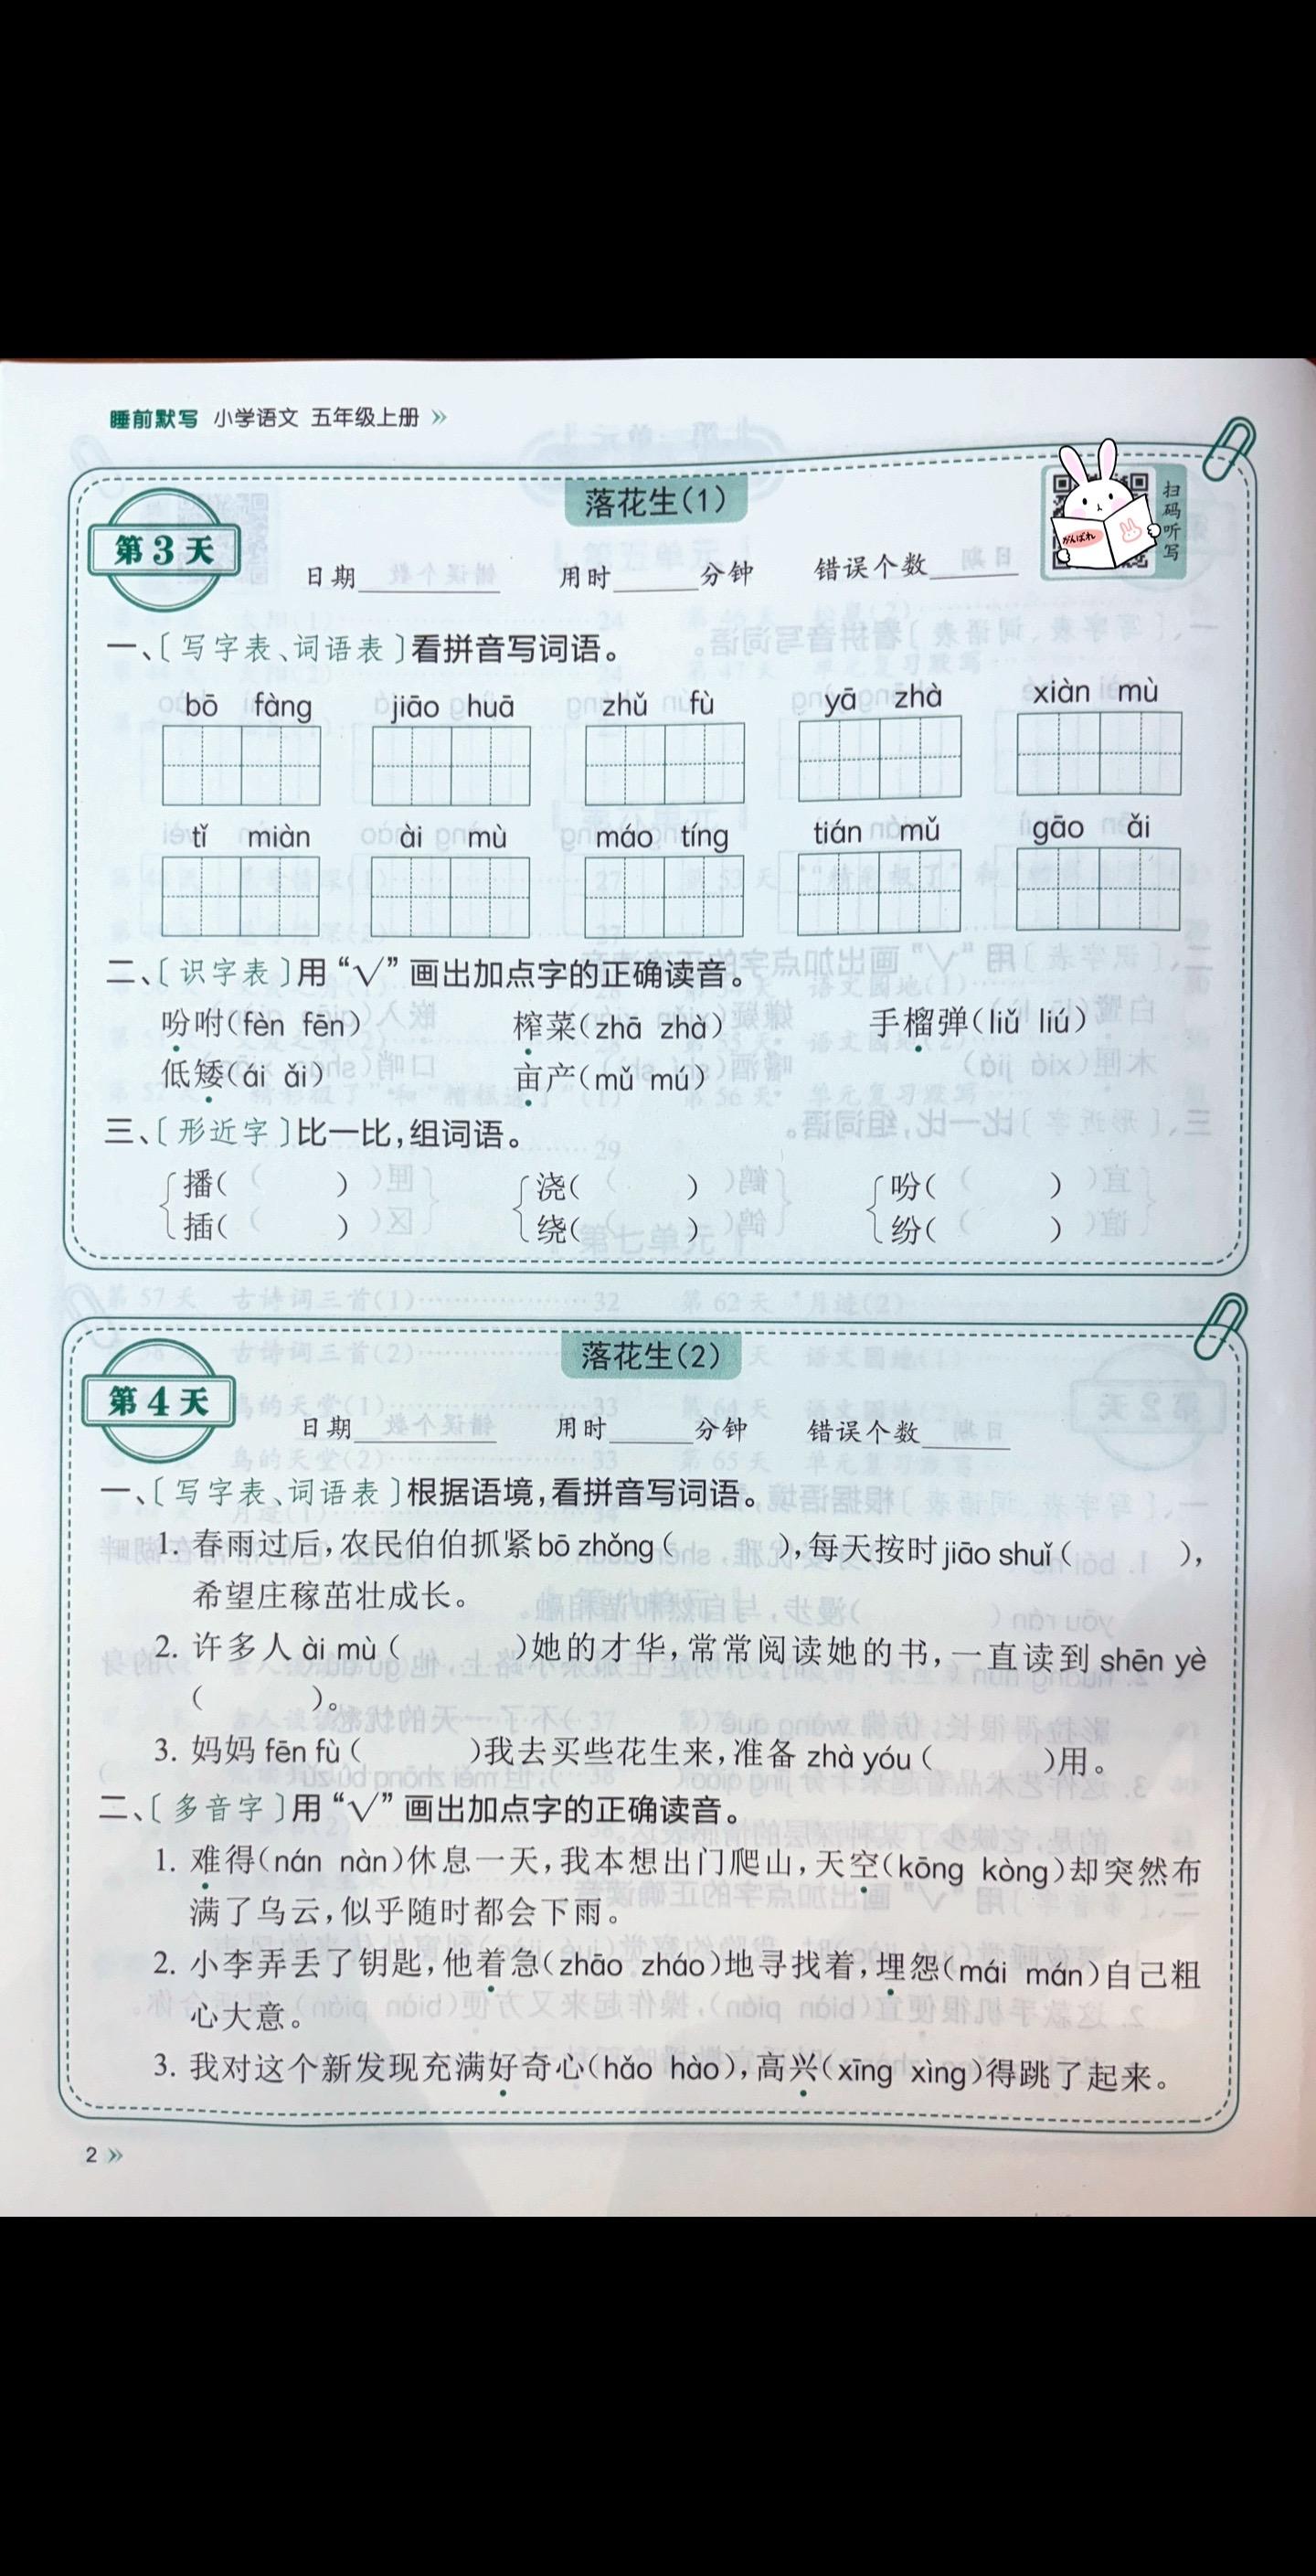 睡前默写 小学语文 五年级上册 »
落花生(1)
扫码听写
がんばれ
第3天
日期 用时 分钟 错误个数
一、〔写字表、词语表〕看拼音写词语。
bō fàng jiāo huā zhǔ fù yā zhà xiàn mù
tǐ miàn ài mù máo tíng tián mǔ gāo ǎi
二、〔识字表〕用“√”画出加点字的正确读音。
吩咐(fèn fēn) 榨菜(zhā zhà) 手榴弹(liǔ liú)
低矮(ái ǎi) 亩产(mǔ mú)
三、〔形近字〕比一比,组词语。
播( ) 浇( ) 吩( )
插( ) 绕( ) 纷( )
落花生(2)
第4天
日期 用时 分钟 错误个数
一、〔写字表、词语表〕根据语境,看拼音写词语。
1. 春雨过后,农民伯伯抓紧bō zhǒng( ),每天按时jiāo shuǐ( ),
希望庄稼茁壮成长。
2. 许多人 ài mù( )她的才华,常常阅读她的书,一直读到 shēn yè
( )。
3. 妈妈 fēn fù( )我去买些花生来,准备 zhà yóu( )用。
二、〔多音字〕用“√”画出加点字的正确读音。
1. 难得(nán nàn)休息一天,我本想出门爬山,天空(kōng kòng)却突然布
满了乌云,似乎随时都会下雨。
2. 小李弄丢了钥匙,他着急(zhāo zháo)地寻找着,埋怨(mái mán)自己粗
心大意。
3. 我对这个新发现充满好奇心(hǎo hào),高兴(xīng xìng)得跳了起来。
2 »